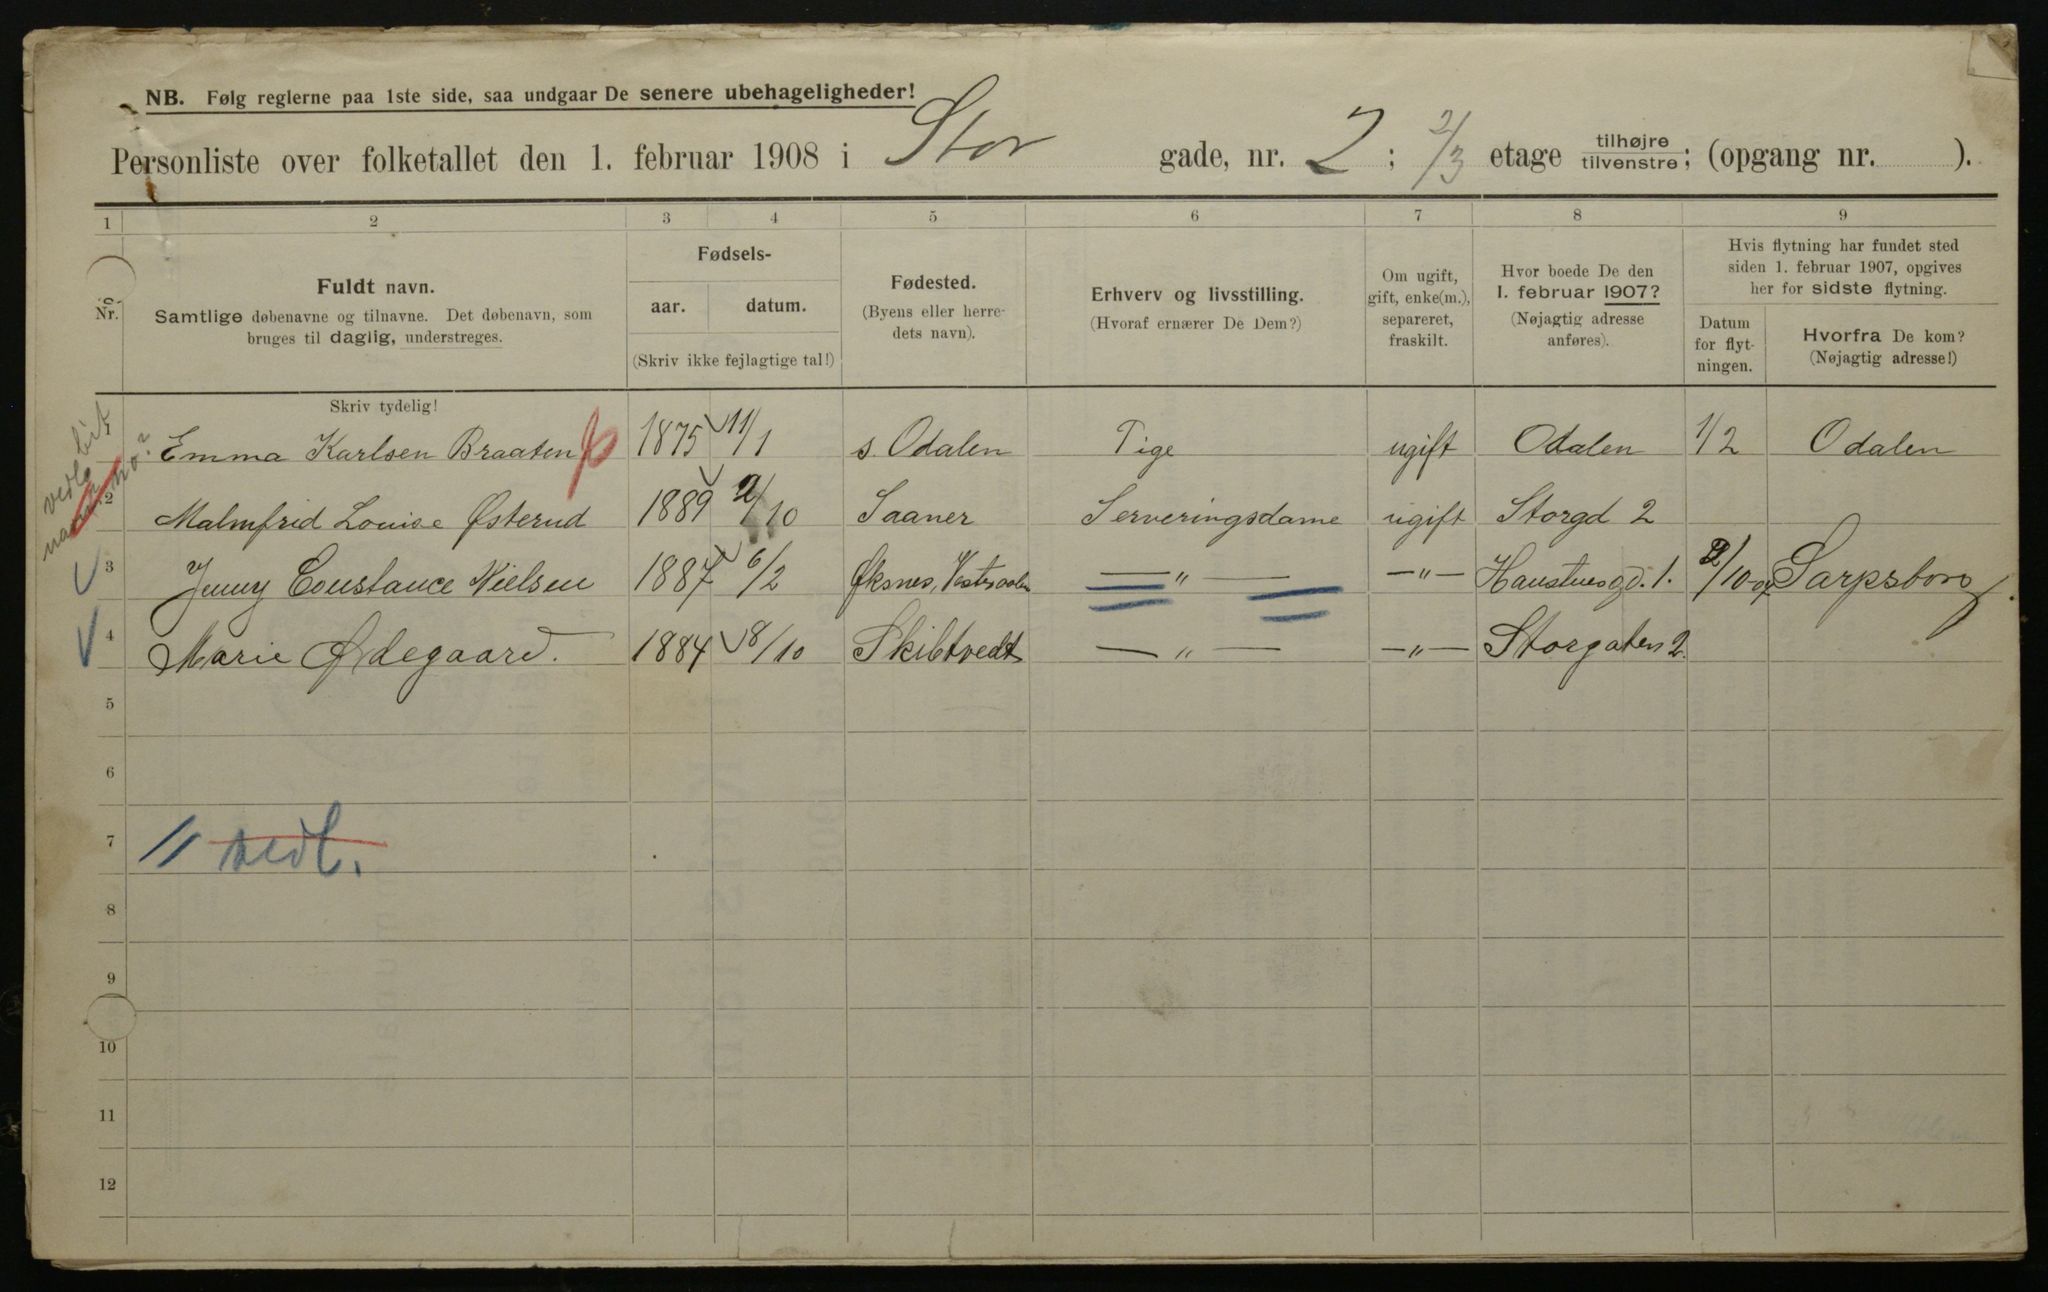 NB. Følg reglerne paa 1ste side, saa undgaar De senere ubehageligheder!
Personliste over folketallet den 1. februar 1908 i Stor gade, nr. 2 ; 2/3 etage tilhøjre tilvenstre; (opgang nr. ).
1 2 3 4 5 6 7 8 9
Nr.
Fuldt navn.
Samtlige døbenavne og tilnavne. Det døbenavn, som
bruges til daglig, understreges.
Fødsels-
aar. datum.
(Skriv ikke fejlagtige tal!)
Fødested.
(Byens eller herre-
dets navn).
Erhverv og livsstilling.
(Hvoraf ernærer De Dem?)
Om ugift,
gift, enke(m.),
separeret,
fraskilt.
Hvor boede De den
1. februar 1907?
(Nøjagtig adresse
anføres).
Hvis flytning har fundet sted
siden 1. februar 1907, opgives
her for sidste flytning.
Datum
for flyt-
ningen.
Hvorfra De kom?
(Nøjagtig adresse!)
Skriv tydelig!
1 Emma Karlsen Braaten 1875 11/1 s. Odalen Pige ugift Odalen 1/2 Odalen
2 Malmfrid Louise Østerud 1889 2/10 Saaner Serveringsdame ugift Storgd 2
3 Jenny Constance Nielsen 1887 6/2 Øksnes, Vestraalen — " — — " — 1. 2/10-07 Sarpsborg.
4 Marie Ødegaard. 1884 8/10 Skibtvedt — " — — " — Storgaten 2.
5
6
7 11 vedl.
8
9
10
11
12